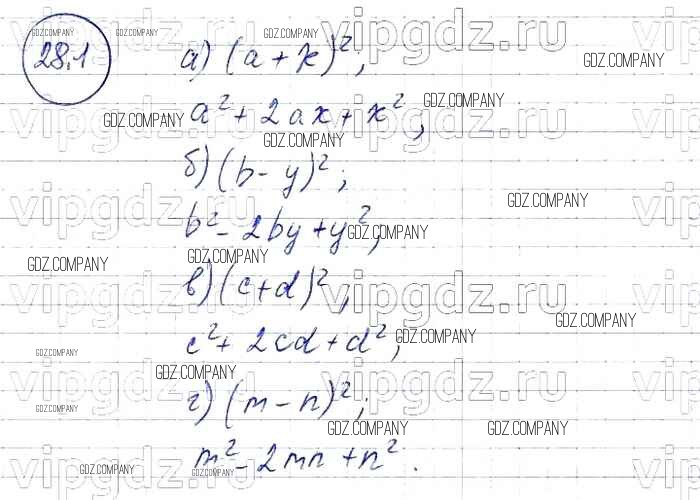 28.1
а) (a + x)²;
a² + 2ax + x²,
б) (b - y)²;
b² - 2by + y²;
в) (c + d)²;
c² + 2cd + d²;
г) (m - n)²;
m² - 2mn + n².
vipgdz.ru
GDZ.COMPANY